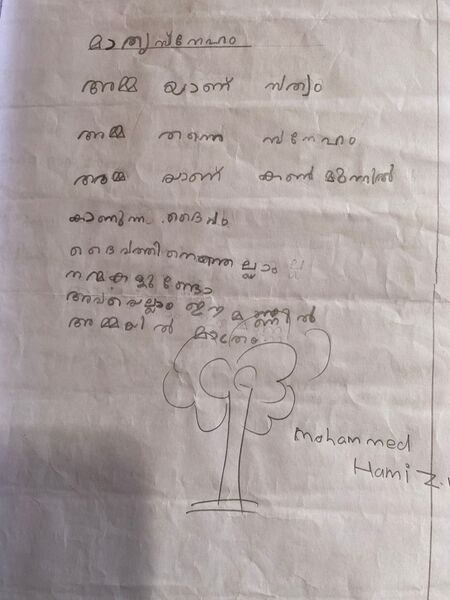 മാതൃസ്നേഹം
അമ്മ യാണ് സത്യം
അമ്മ തന്നെ സ്നേഹം
അമ്മ യാണ് കൺ മുന്നിൽ
കാണുന്ന ദൈവം
ദൈവത്തിനെന്തെല്ലാം
നന്മകളുണ്ടോ
അവയെല്ലാം ഈ മണ്ണിൽ
അമ്മയിൽ മാത്രം
Mohammed
Hami Z.